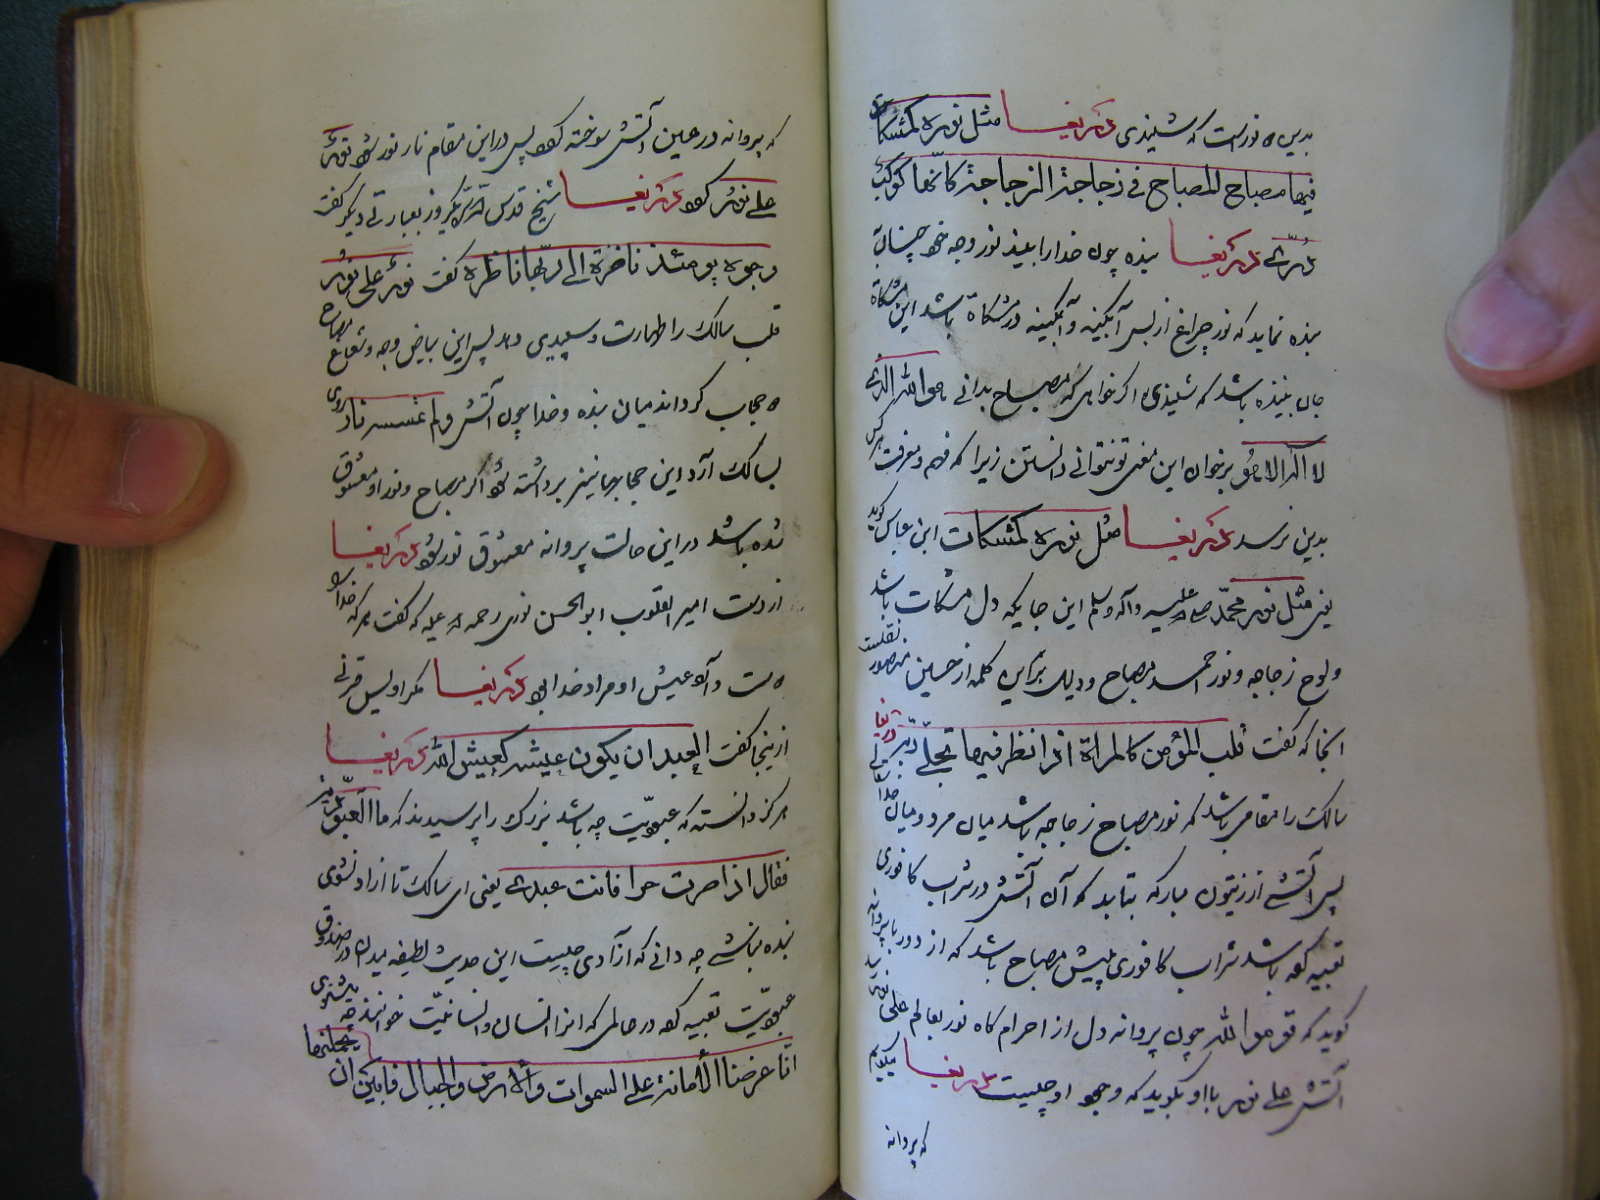 بدین نور است که شنیدی دریغا مثل نوره کمشکات
فیها مصباح المصباح فی زجاجة الزجاجة کانها کوکب
دری دریغا بنده چون خدا را بیند نور وجه خود چنان با
بنده نماید که نور چراغ از پس آبگینه و آبگینه در مشکاة باشد این مشکاة
جان بیننده باشد که شنیدی اگر خواهی که مصباح بدانی هو الله الذی
لا اله الا هو برخوان این معنی تو نتوانی دانستن زیرا که فهم و معرفت هر کس
بدین نرسد دریغا مثل نوره کمشکات ابن عباس گوید
یعنی مثل نور محمد صلی الله علیه وآله وسلم این جا یکه دل مشکات باشد
و لوح زجاجه و نور احمد مصباح و دلیل بر این کلمه از حسین منصور نقلست
آنجا که گفت قلب المؤمن کالمراة اذا نظر فیها تجلی ربه دریغا
سالک را مقامی باشد که نور مصباح زجاجه باشد میان مرد و میان خدا
پس آتشی از زیتون مبارکه بتابد که آن آتش در شراب کافوری
تعبیه کرده باشد شراب کافوری پیش مصباح باشد که از دور با پروانه
گوید که قو هو الله چون پروانه دل از احرام گاه نور بعالم علی نوری
آتش علی نور با او بگوید که وجود او چیست دریغا میگویم
که پروانه
که پروانه در عین آتش سوخته گردد پس در این مقام نار نور شود نور
علی نور گردد دریغا شیخ قدس الله سره یک روز بعبارتی دیگر گفت
وجوه یومئذ ناضرة الی ربها ناظرة گفت نور علی نور
قلب سالک را طهارت و سپیدی دهد پس این بیاض وجه و شعاع مصباح
حجاب گرداند میان بنده و خدا چون آتش ولم تمسسه نار روی
بسالک آرد این حجابها نیز برداشته شود اگر مصباح و نور او معشوق
شده باشد در این حالت پروانه معشوق نور شود دریغا
از دست امیر القلوب ابو الحسن نوری رحمه الله علیه که گفت هر که خدا را
دانست عیش او مراد خدا بود دریغا مگر اویس قرنی
از اینجا گفت العبد ان یکون عیشه کعیش الله دریغا
هرگز دانسته که عبودیت چه باشد بزرگ را پرسیدند که ما العبودیة
فقال اذا صرت حرا فانت عبد یعنی ای سالک تا آزاد نشوی
بنده نباشی چه دانی که آزادی چیست این حدیث لطیفه میدان در صندوق
عبودیت تعبیه کرده در عالمی که انرا انسان و انسانیت خوانند چه میشنوی
انا عرضنا الأمانة علی السموات والأرض والجبال فابین ان یحملنها